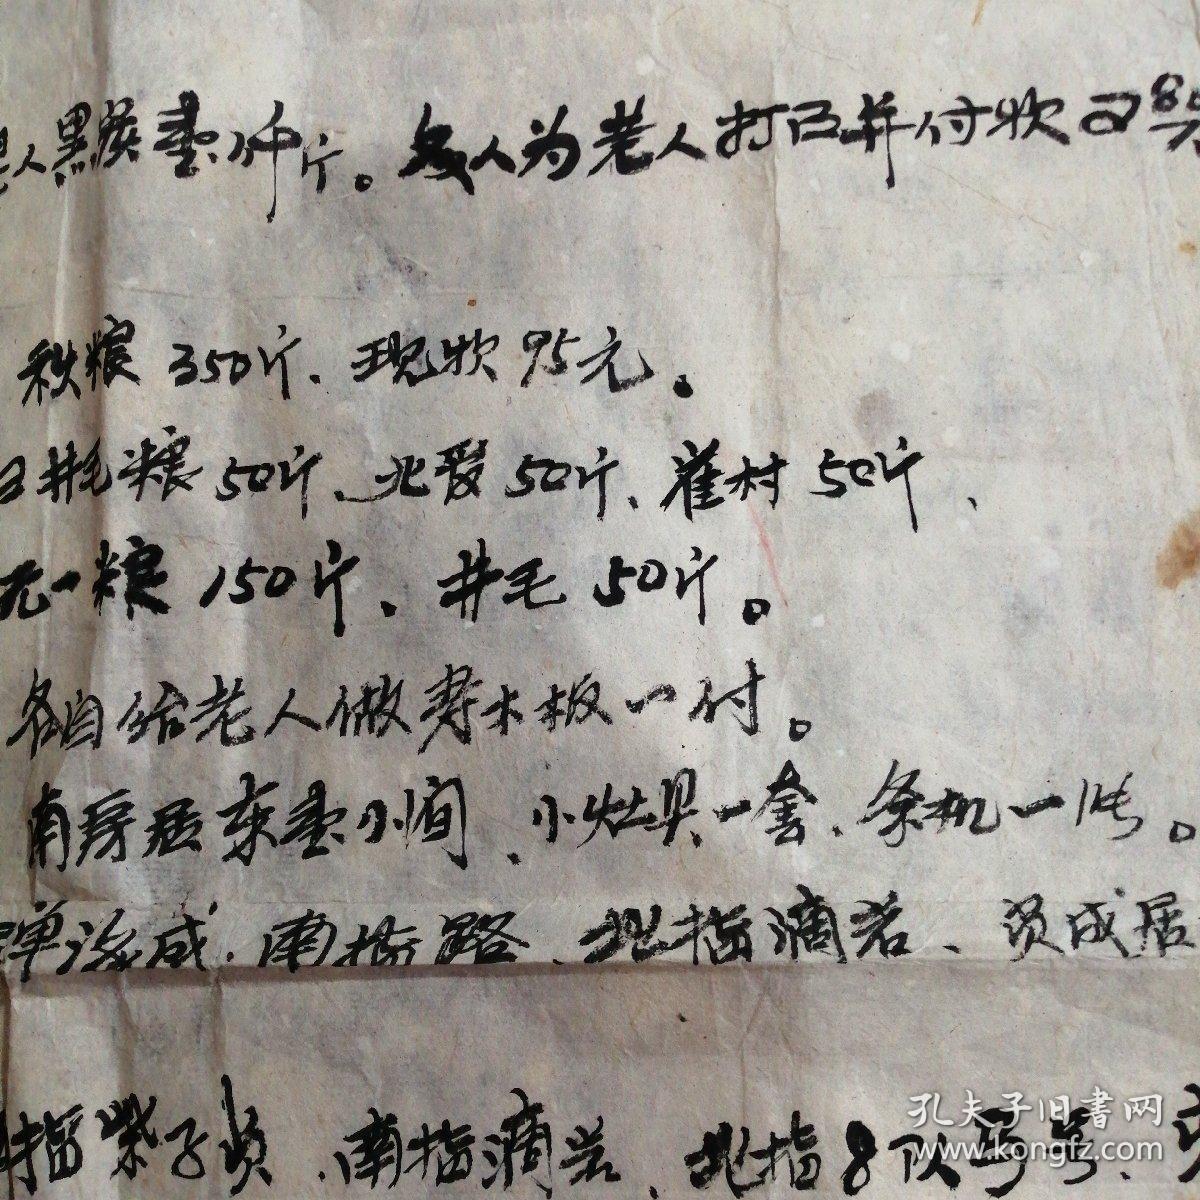 人黑炭壹仟斤。每人为老人打下并付款
秋粮350斤、现款95元。
井毛粮50斤、北爱50斤、崔村50斤、
元一粮150斤、井毛50斤。
各自给老人做寿木板一付。
南房居东壹小间、小灶具一套、条机一张。
海成、南指路、北指滴岩、贡成居
指紫子贡、南指滴岩、北指8队
孔夫子旧书网
www.kongfz.com